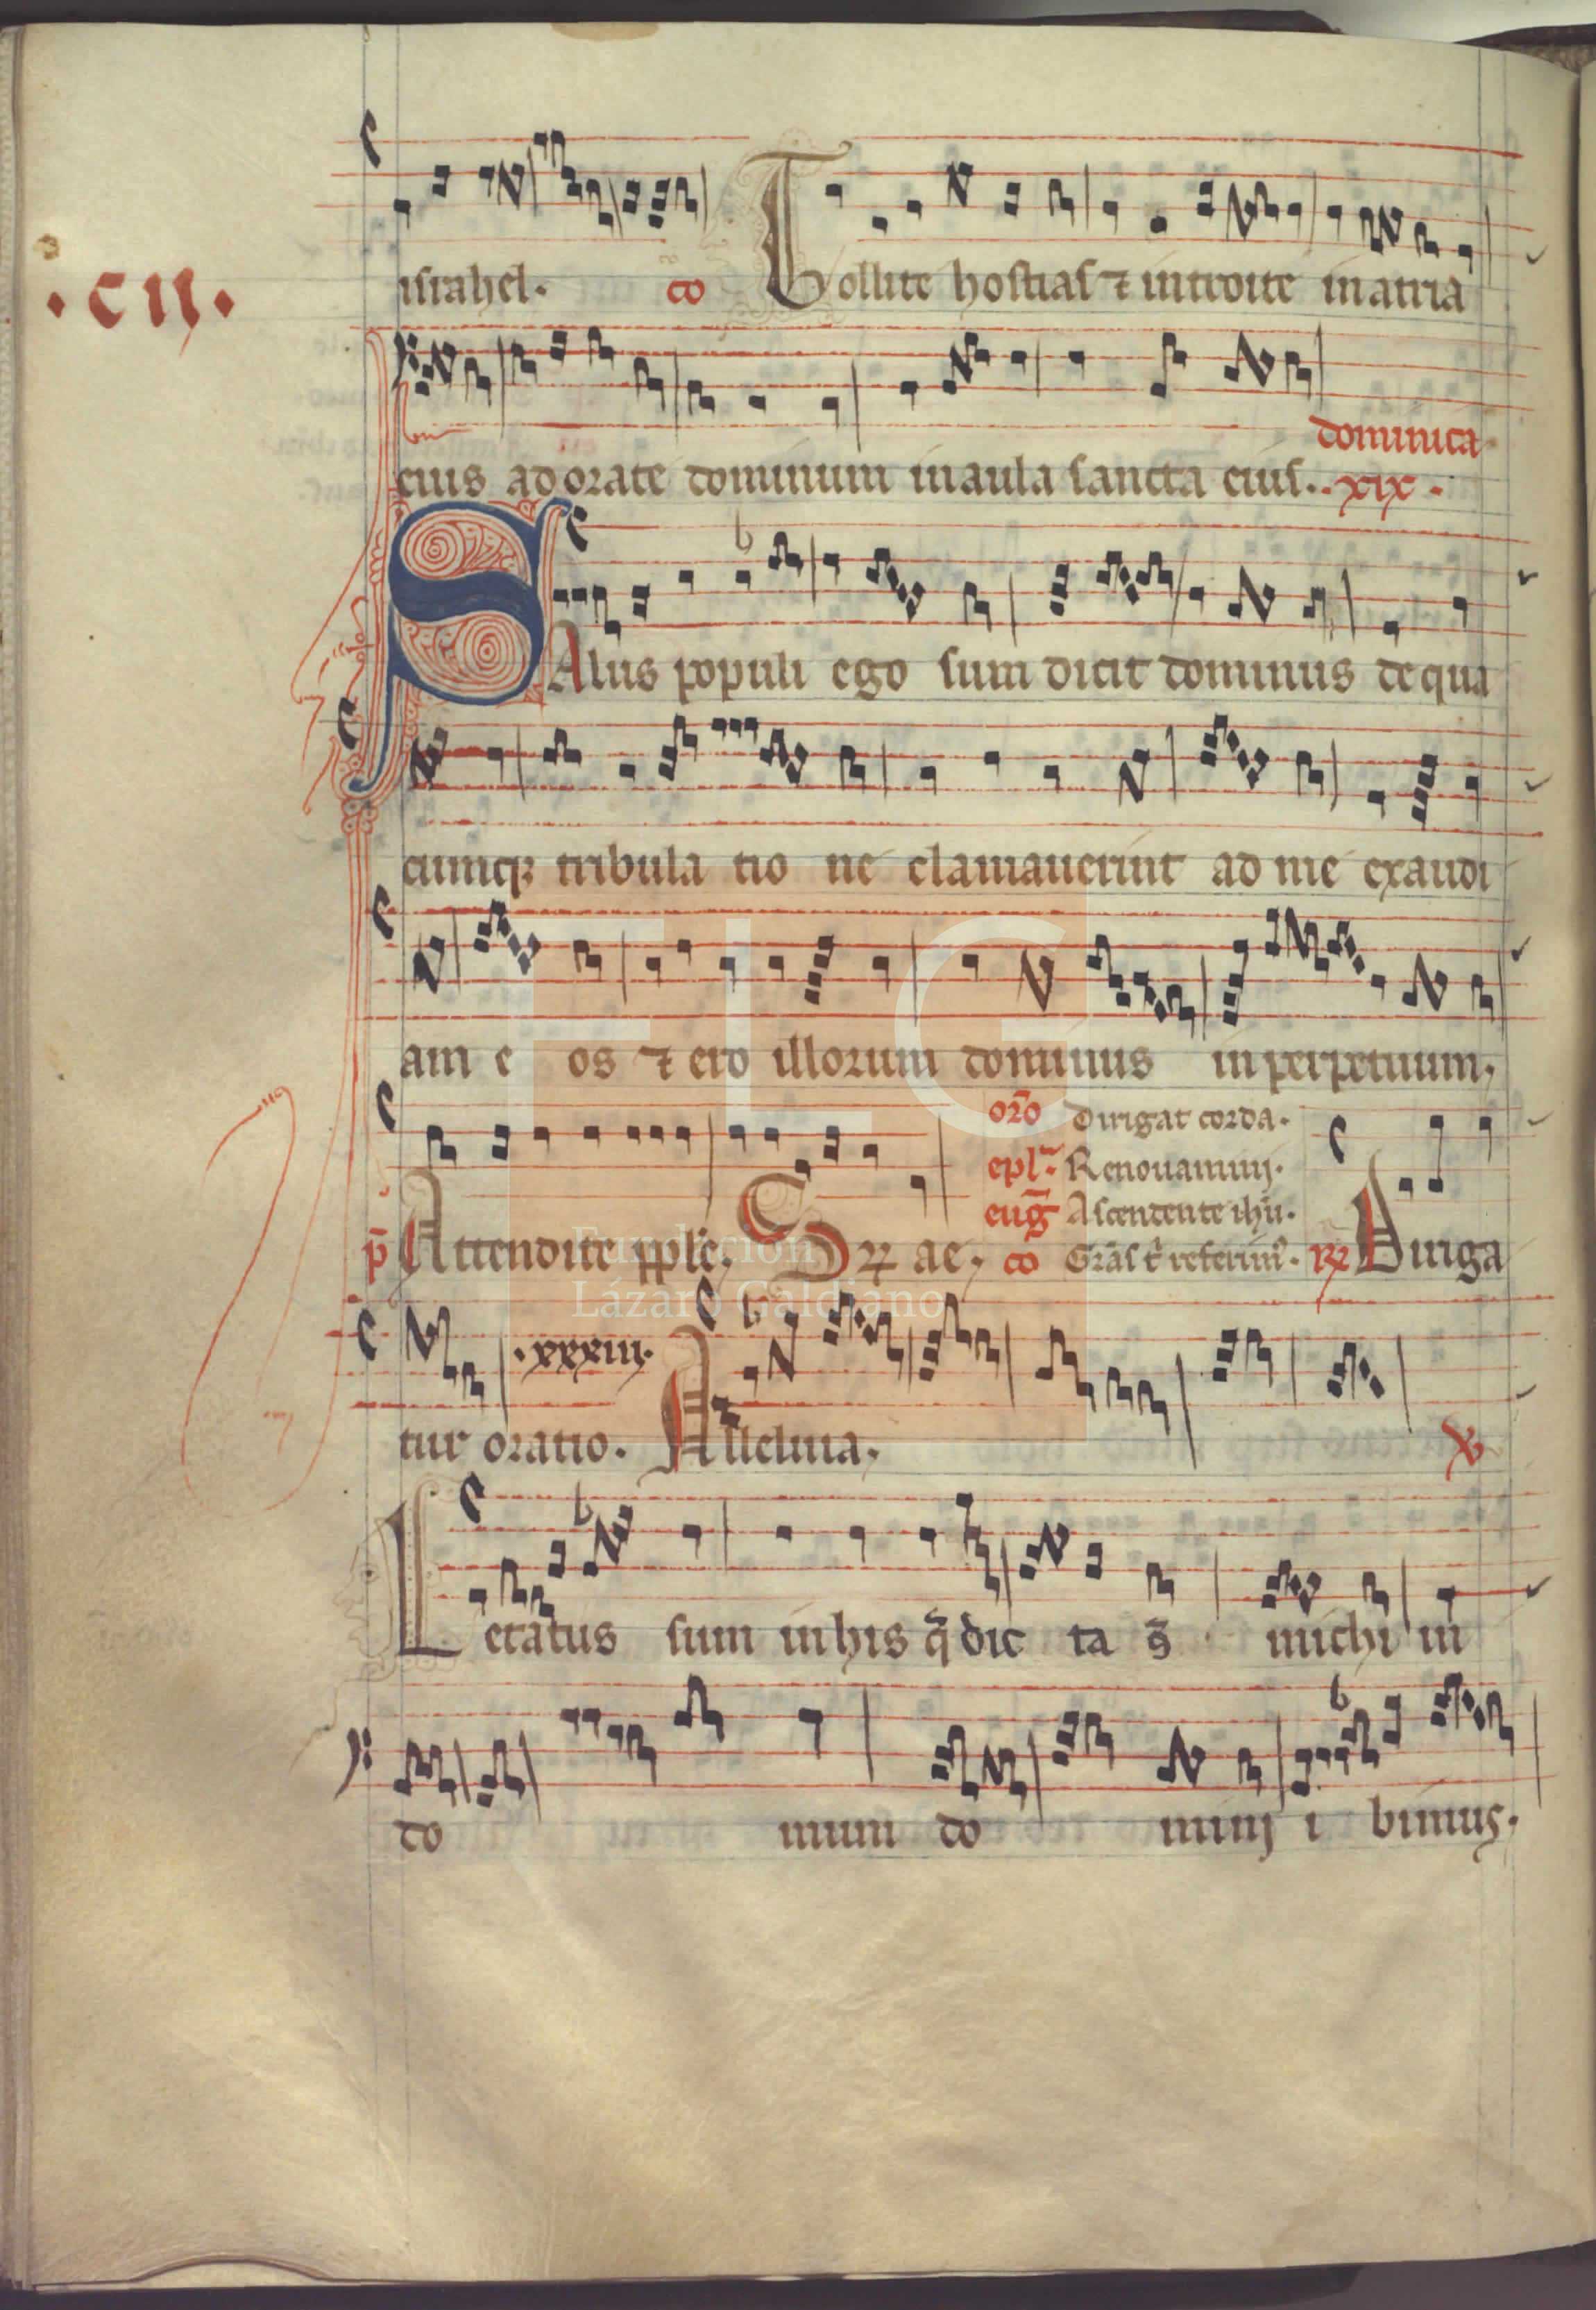 israhel. co Tollite hostias ⁊ introite in atria
.cii.
eius adorate dominum in aula sancta eius.
dominica
.xix.
SAlus populi ego sum dicit dominus de qua
cumqꝫ tribula tio ne clamauerint ad me exaudi
am e os ⁊ ero illorum dominus in perpetuum.
or̄o Dirigat corda.
epl̄. Renouamini.
eug̅ Ascendente ihū.
p̄ Attendite pple. ae. co Gr̄as t' referim᷒. R Diriga
tur oratio. .xxxiii. Alleluia.
Letatus sum in his q̄ dic ta michi in
do mum do minj i bimus.
Fundación
Lázaro Galdiano
FLG